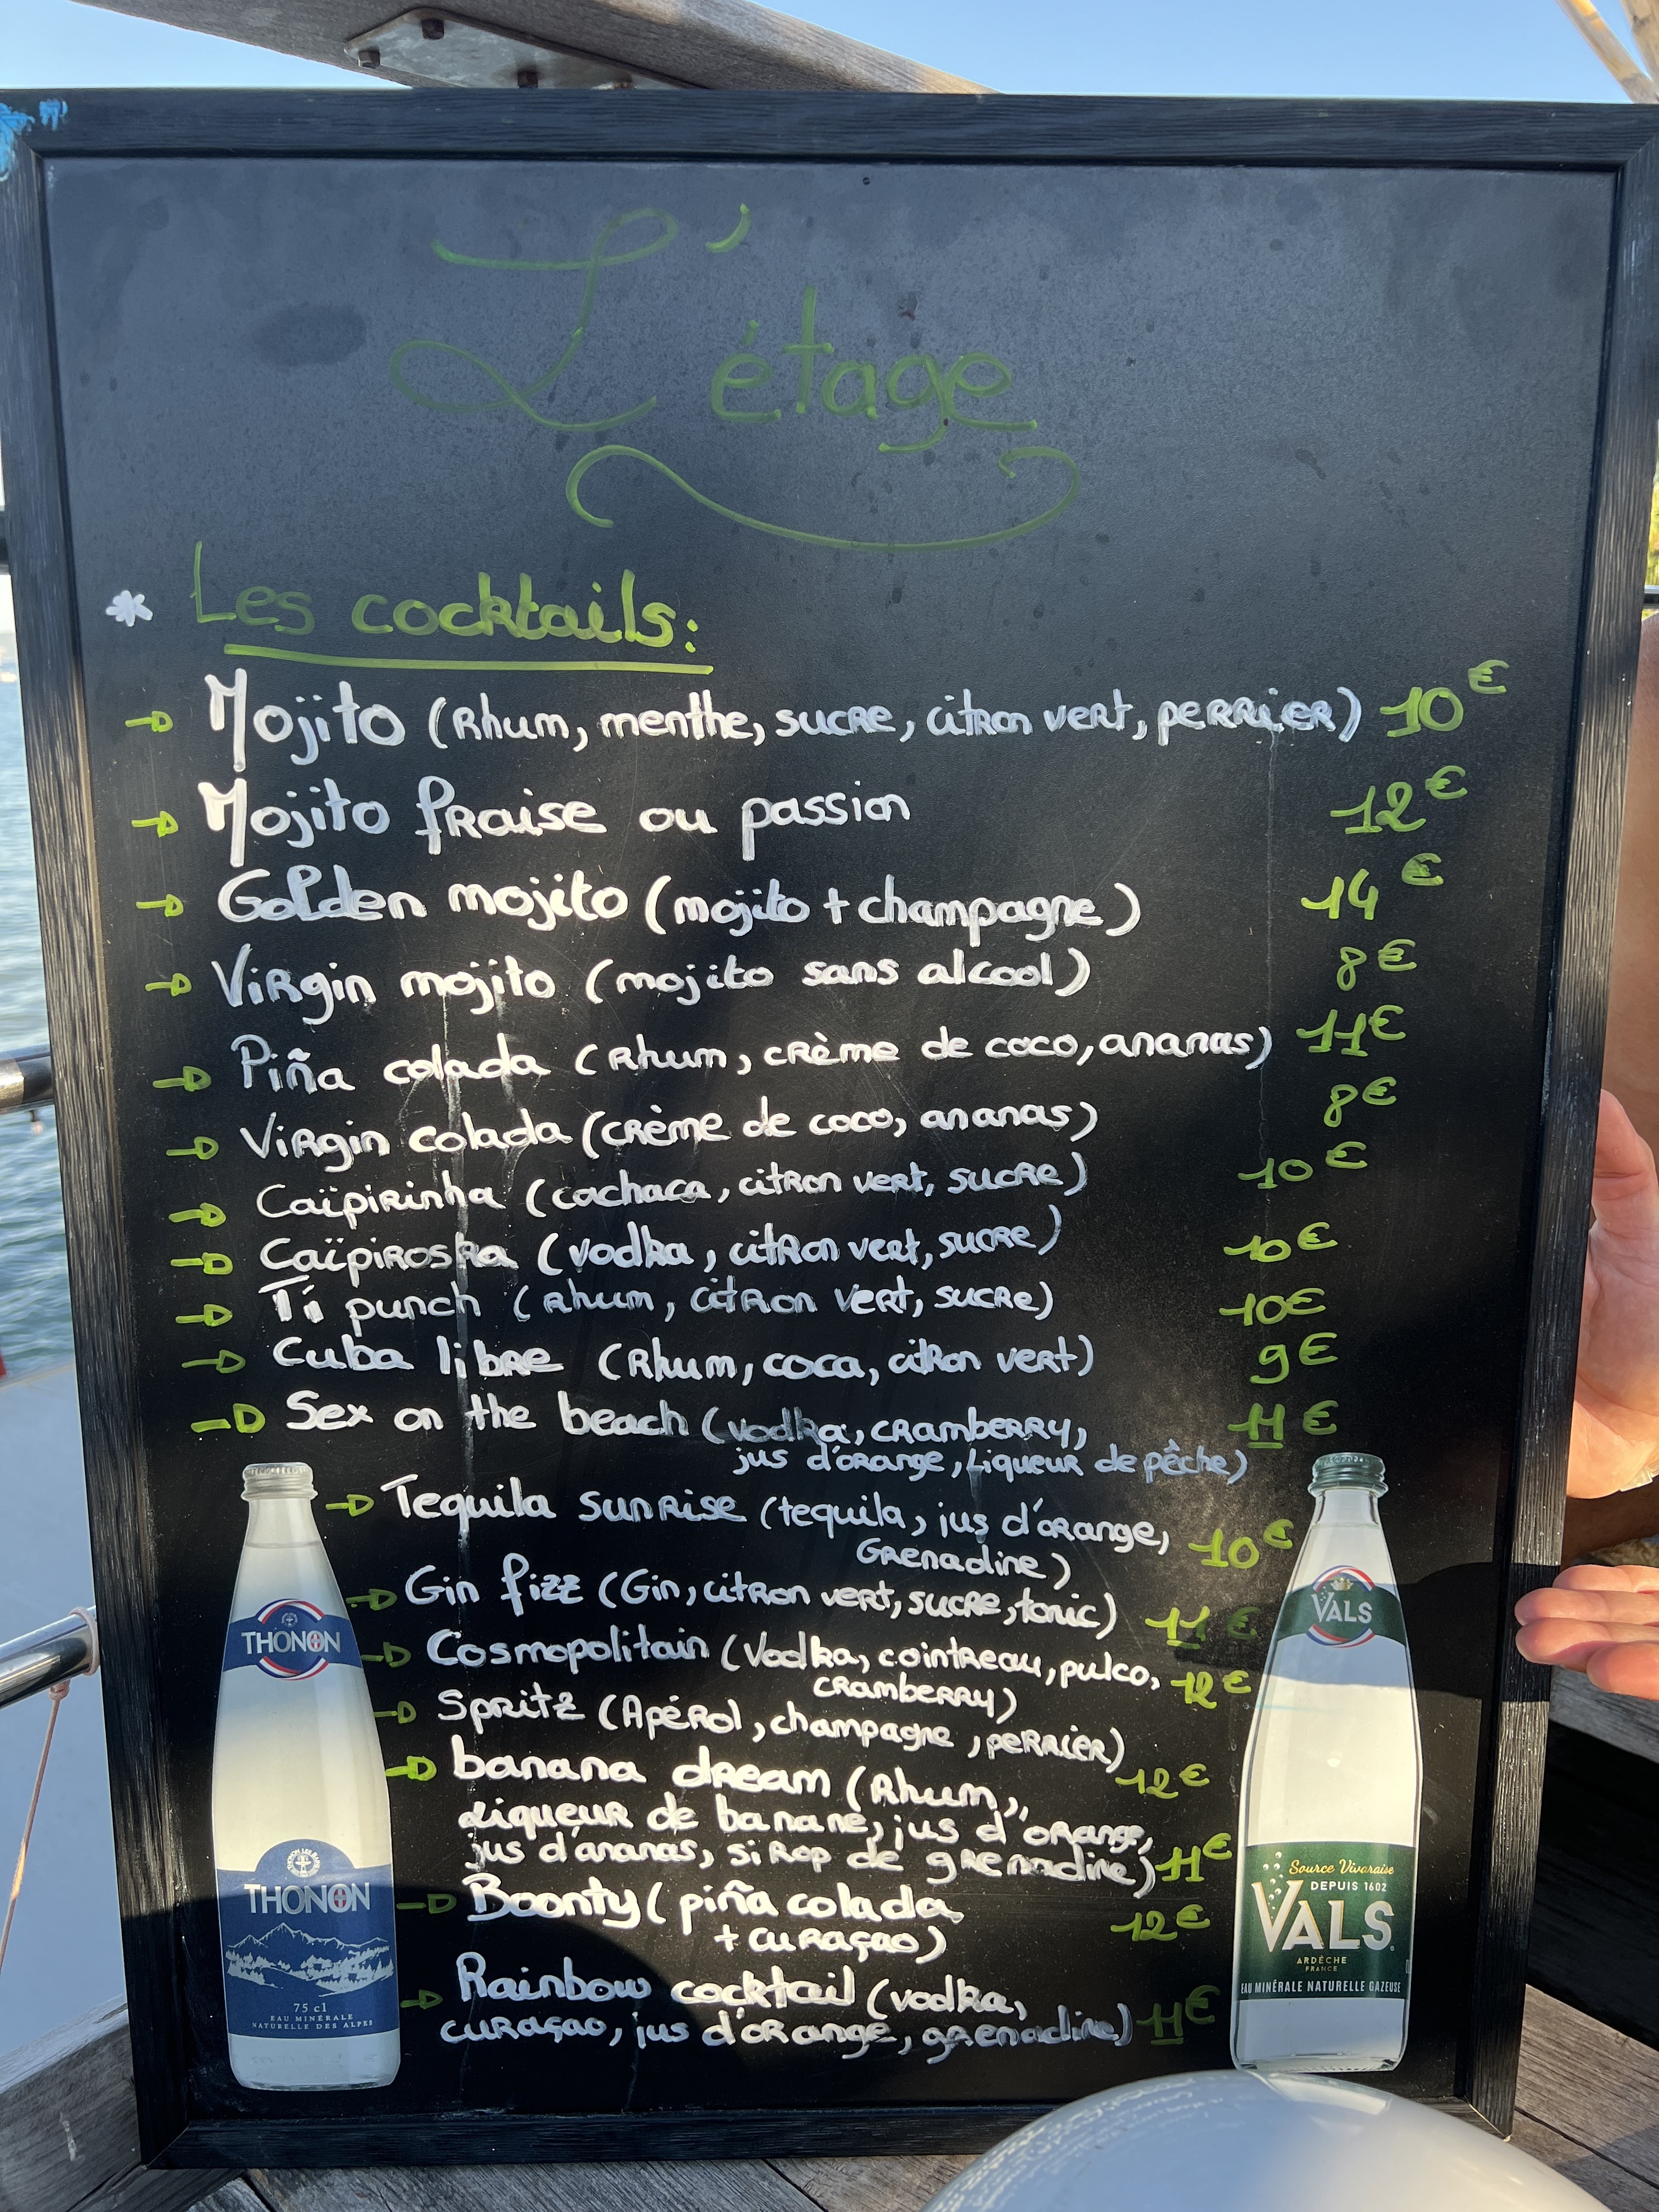 L'étage
* Les cocktails:
Mojito (Rhum, menthe, sucre, citron vert, perrier) 10€
Mojito fraise ou passion 12€
Golden mojito (mojito + champagne) 14€
Virgin mojito (mojito sans alcool) 8€
Piña colada (Rhum, crème de coco, ananas) 11€
Virgin colada (crème de coco, ananas) 8€
Caïpirinha (cachaca, citron vert, sucre) 10€
Caïpiroska (vodka, citron vert, sucre) 10€
Ti punch (Rhum, citron vert, sucre) 10€
Cuba libre (Rhum, coca, citron vert) 9€
Sex on the beach (vodka, cramberry, 11€
jus d'orange, liqueur de pêche)
Tequila sunrise (tequila, jus d'orange, 10€
Grenadine)
Gin fizz (Gin, citron vert, sucre, tonic) 11€
Cosmopolitain (Vodka, cointreau, pulco, 12€
cramberry)
Spritz (Apérol, champagne, perrier)
12€
banana dream (Rhum,
liqueur de banane, jus d'orange,
jus d'ananas, sirop de grenadine) 11€
Boonty (piña colada 12€
+ curaçao)
Rainbow cocktail (vodka,
curaçao, jus d'orange, grenadine) 11€
THONON
THONON
75 cl
EAU MINÉRALE
NATURELLE DES ALPES
VALS
Source Vivaraise
DEPUIS 1602
VALS
ARDÈCHE
FRANCE
EAU MINÉRALE NATURELLE GAZEUSE